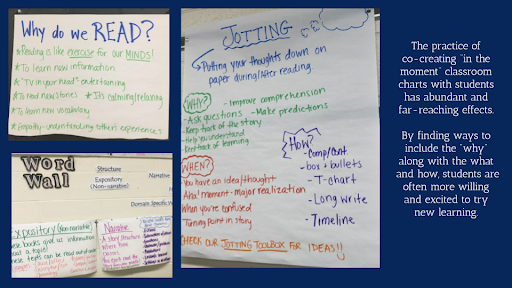 Why do we READ?
*Reading is like exercise for our MINDS!
*To learn new information
*"TV in your head" entertaining
*To read new stories *It's calming/relaxing
*To learn new vocabulary
*Empathy-understanding others experiences
Word
Wall
Structure
Expository
(Non-narrative)
Narrative
Domain Specific
Expository (non-narrative)
books give us information
a topic!
texts can be read out of
Narrative
A story structure
JOTTING
→ Putting your thoughts down on
paper during/After reading
WHY?
- Improve comprehension
- Ask questions - Make predictions
- Keep track of the story
- Help you understand
- Keep track of learning
WHEN?
You have an idea/thought
"Aha" moment - major realization
When you're confused
Turning Point in story
How?
- Comp/Cont.
- box + bullets
- T-chart
- Long Write
- Timeline
CHECK OUR JOTTING TOOLBOX FOR IDEAS!!
The practice of
co-creating "in the
moment" classroom
charts with students
has abundant and
far-reaching effects.
By finding ways to
include the "why"
along with the what
and how, students are
often more willing
and excited to try
new learning.